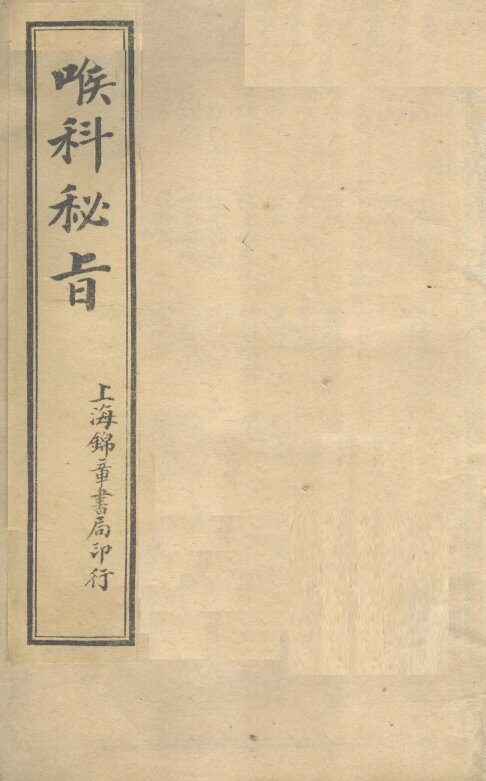 喉科秘旨
上海錦章書局印行